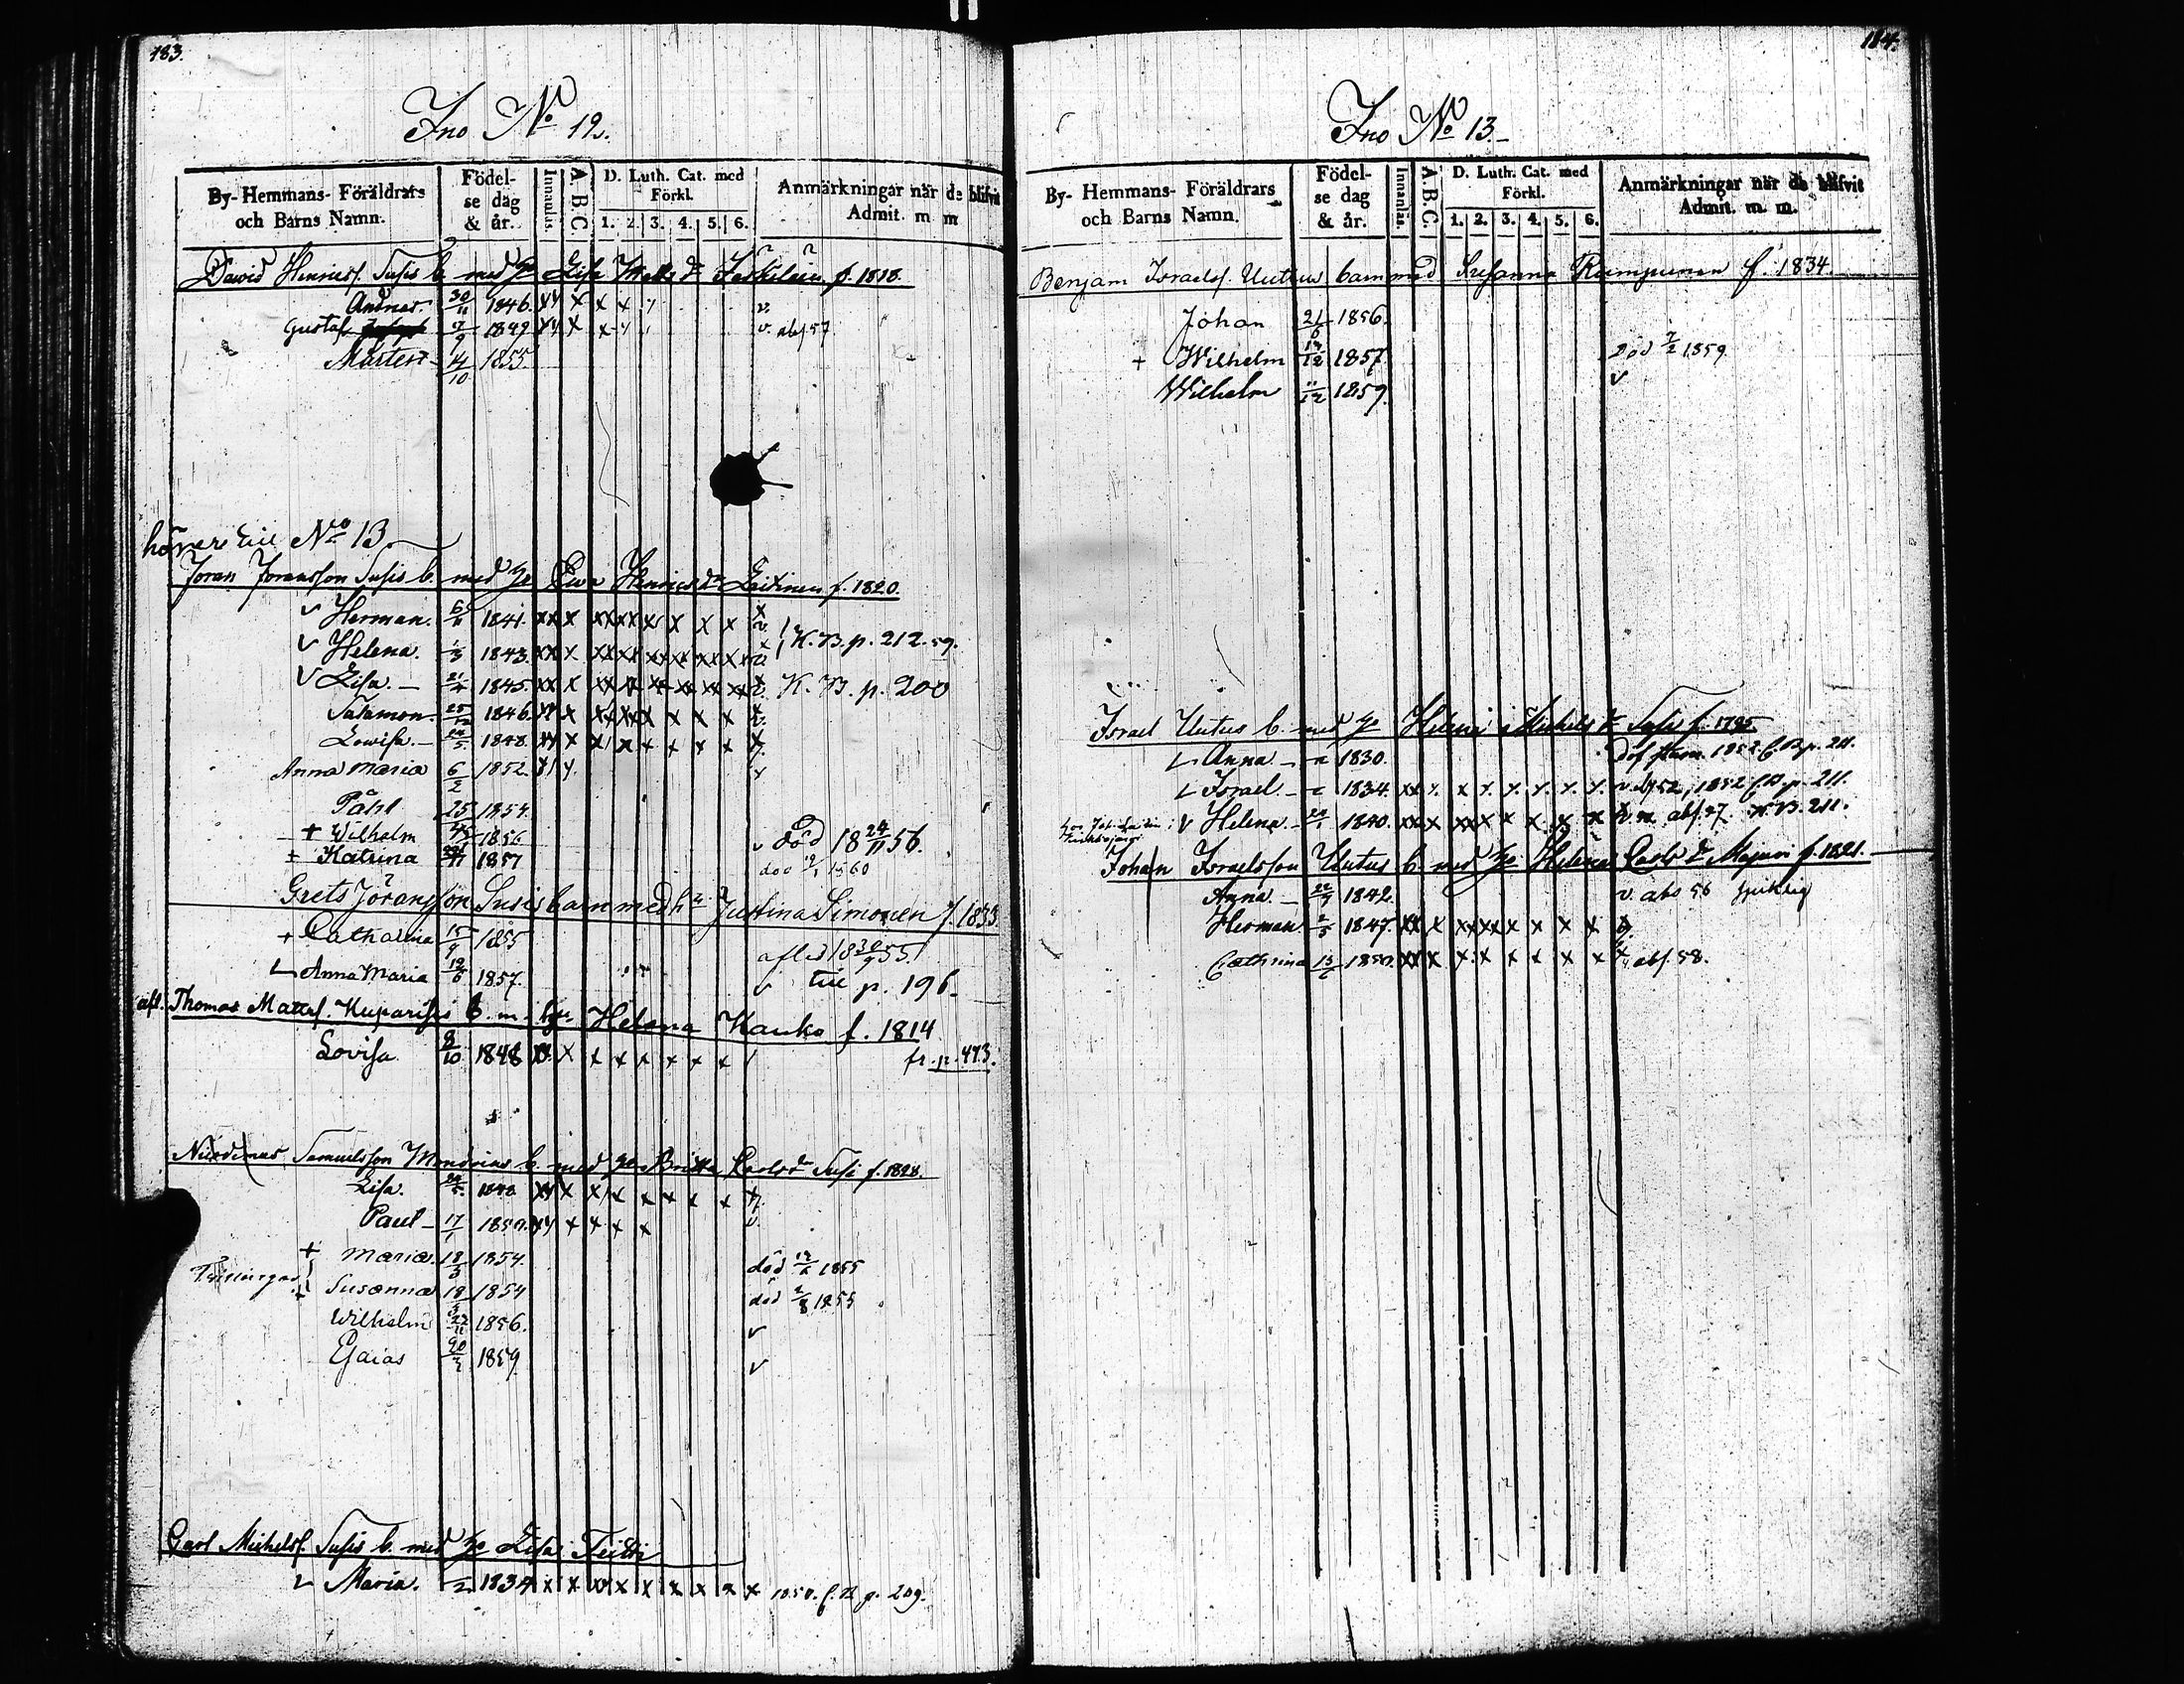 183.
Ino No 12.
By- Hemmans- Föräldrars och Barns Namn.
Födelse dag & år.
Innanläs.
A. B. C.
D. Luth. Cat. med Förkl.
1. 2. 3. 4. 5. 6.
Anmärkningar när de blifvit Admit. m m
David Henrics. Susis b. med h. Lisa Matts d. f. 1818.
Andreas. 30/11 1846. xy x x x v.
Gustaf 9/9 1849 xy x x v. abs. 57
Mårten 14/10 1855.
hörer till No 13.
Jöran Jöransson Susis b. med h. Ewa Henrics dr Laitinen f. 1820.
v Herman. 6/11 1841. xx x xx xx x x x x
v Helena. 1/3 1843. xx x xx xx xx xx xx K. B. p. 212. 59.
v Lisa. 21/4 1845. xx x xx xx xx xx K. B. p. 200
Salamon. 25/12 1846. x x x x x
Lowisa. 24/5 1848. xy x x x x x x
Anna Maria 6/2 1852.
Påhl 25 1854.
+ Wilhelm 1856 v död 18 24/11 56.
+ Katrina 1857 död 1860
Grels Jöransson Susis barn med h. Justina Simonen f. 1833.
+ Catharina 15/9 1855 afled 18 30/9 55.
Anna Maria 19/6 1857. v till p. 196.
afl. Thomas Matts. Kuparises b. m. h. Helena Kauko f. 1814
Lovisa 8/10 1848 x x x x x x x fr. p. 473.
Nicodemus Samuelsson b. med h. Britta Carls dr Susi f. 1828.
Lisa. 24/5 1848 xy x x x x x x x
Paul 17/1 1850. xy x x x x v.
+ Maria 18/3 1854. död 1855
Susanna 18/3 1854 död 2/8 1855
Wilhelm 22/11 1856. v
Esaias 1859. v
Carl Michels. Susis b. med h. Lisa Teitti
Maria. 1834 x x x x x x x x 1850. C. B. p. 209.
184.
Ino No 13.
By- Hemmans- Föräldrars och Barns Namn.
Födelse dag & år.
Innanläs.
A. B. C.
D. Luth. Cat. med Förkl.
1. 2. 3. 4. 5. 6.
Anmärkningar när de blifvit Admit. m. m.
Benjam Israels. Uutus barn med Susanna Rumpunen f. 1834.
Johan 21/6 1856.
+ Wilhelm 19/12 1857 Död 7/2 1859
Wilhelm 11/12 1859. v
Israel Uutus b. med h. Helena Michels dr Susi f. 1795
Anna. 1830. 1852 C. B. p. 211.
Israel. 1834. xx x x x x x x 1852 C. B. p. 211.
v Helena. 24/1 1840. xx x xx x x x x x abs. 57. K. B. 211.
Johan Israelsson Uutus b. med h. Helena Carls dr Majuri f. 1821.
Anna. 22/7 1842. v. abs 56 sjuklig
Herman 2/5 1847. xx x xx xx x x x x
Cathrina 13/6 1850. xx x x x x x x x abs. 58.